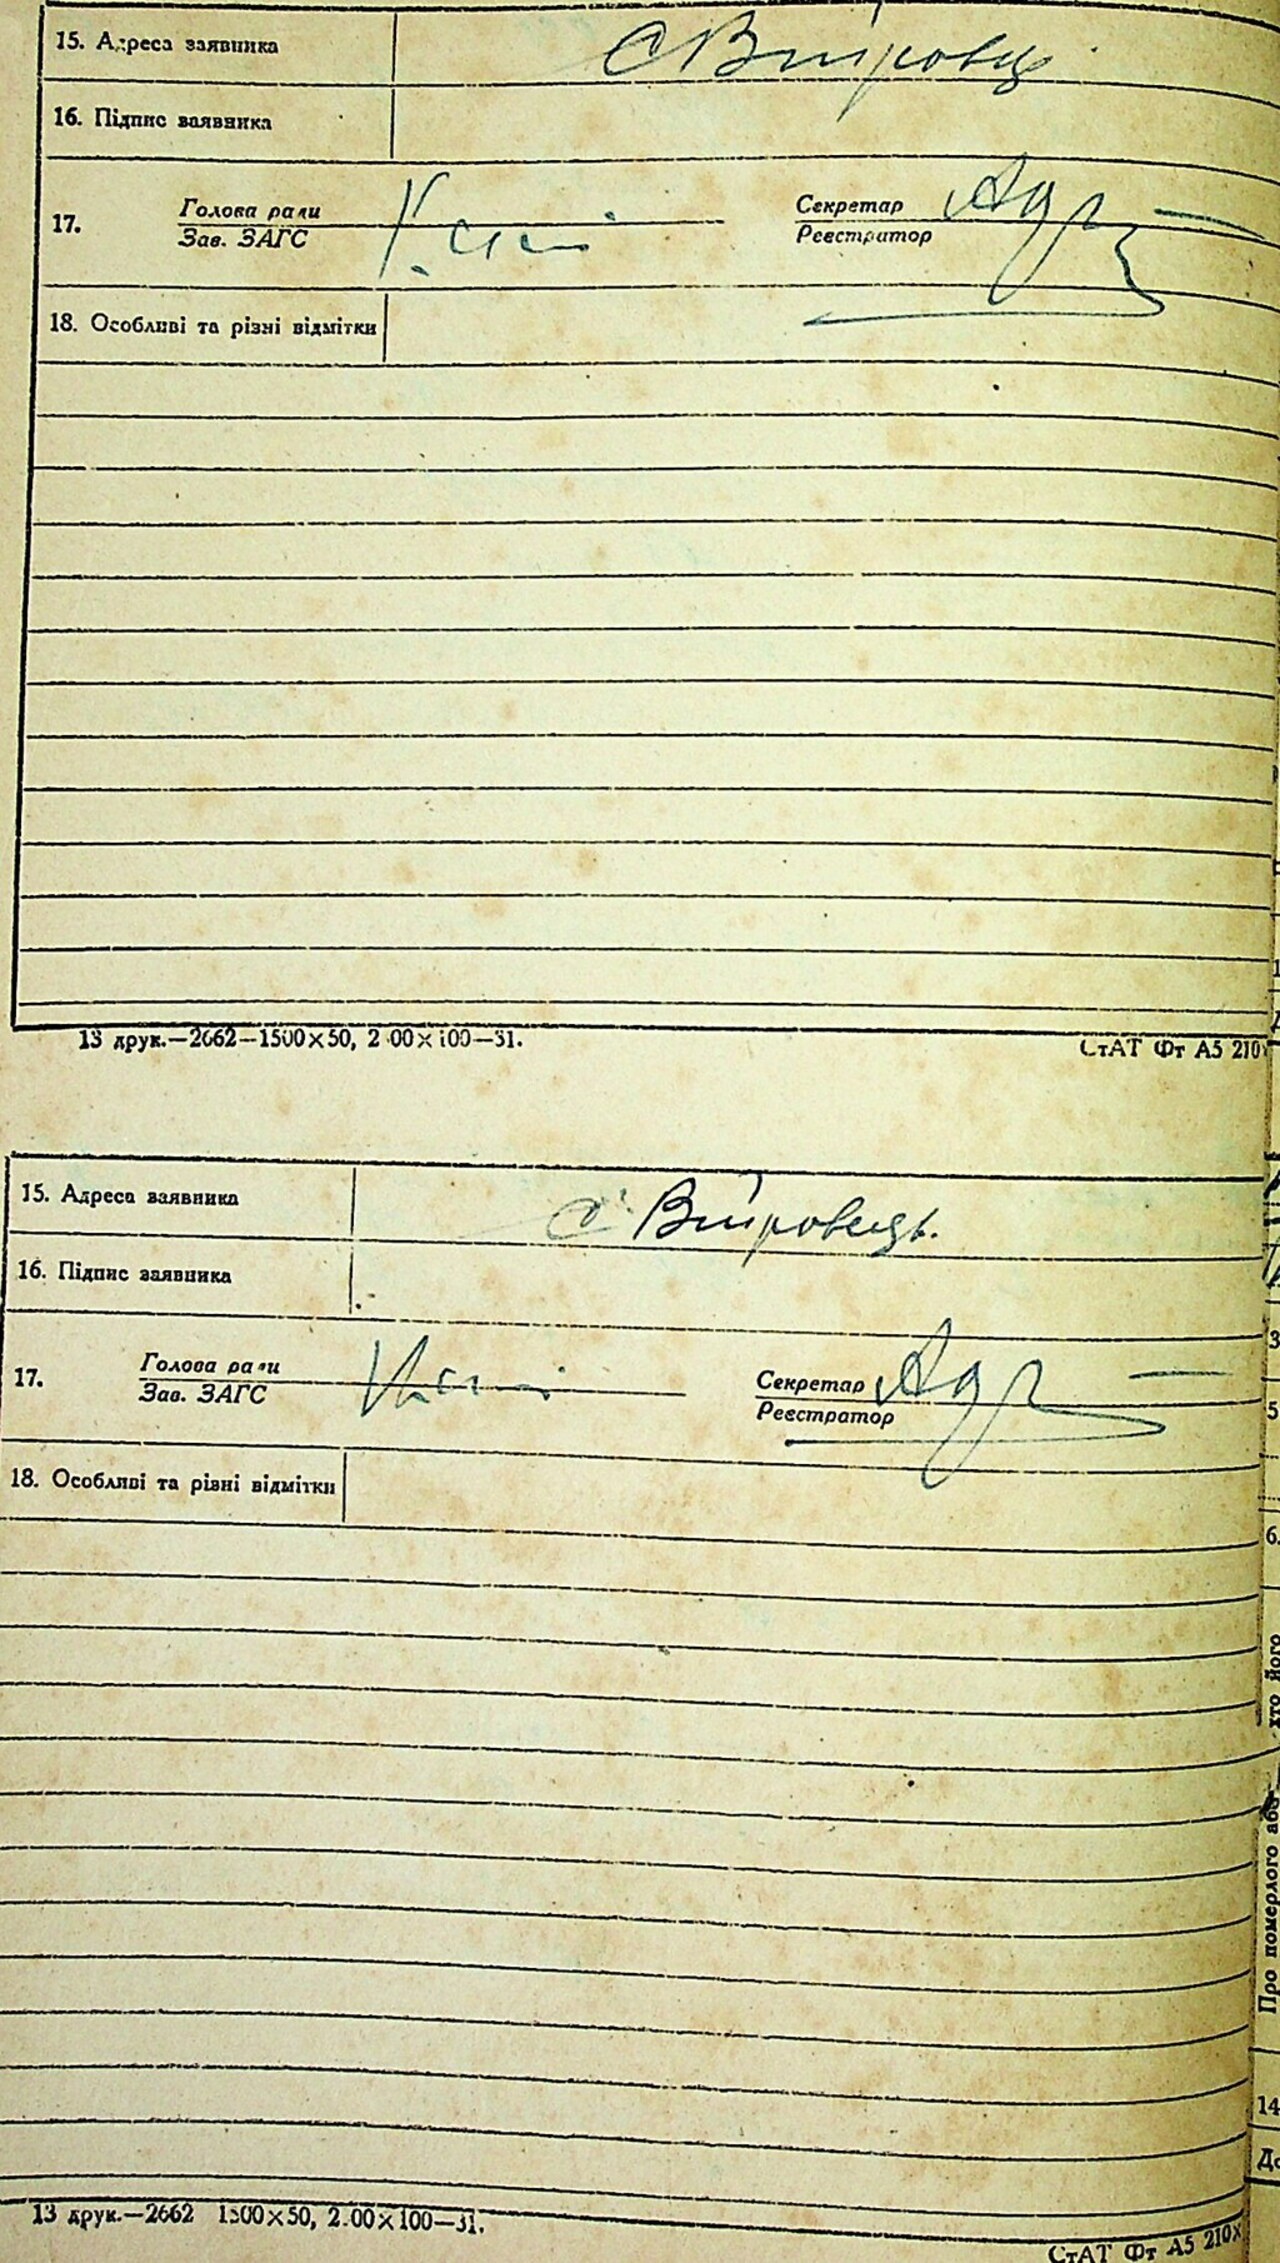 15. Адреса заявника
16. Підпис заявника
17. Голова ради Секретар
Зав. ЗАГС Реєстратор
18. Особливі та різні відмітки
13 друк.—2662—1500×50, 2 00×100—31.
СтАТ Фт А5 210×
15. Адреса заявника с Вихровець.
16. Підпис заявника
17. Голова ради Секретар
Зав. ЗАГС Реєстратор
18. Особливі та різні відмітки
13 друк.—2662 1500×50, 2.00×100—31.
СтАТ Фт А5 210×
3
5
6.
хто його
Про померлого або
14